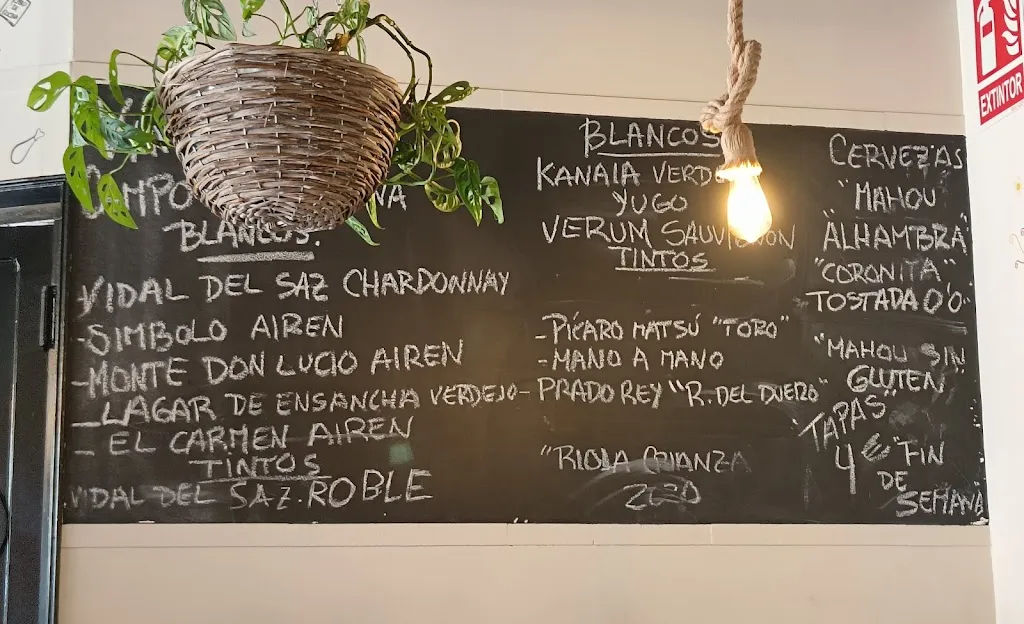 BLANCOS.
VIDAL DEL SAZ CHARDONNAY
-SIMBOLO AIREN
-MONTE DON LUCIO AIREN
-LAGAR DE ENSANCHA VERDEJO
- EL CARMEN AIREN
TINTOS
VIDAL DEL SAZ. ROBLE
BLANCOS
YUGO
VERUM SAUVIGNON
TINTOS
-PÍCARO MATSÚ "TORO"
-MANO A MANO
- PRADO REY "R. DEL DUERO"
CRIANZA
2020
CERVEZAS
"MAHOU
"ALHAMBRA"
"CORONITA"
TOSTADA 0'0
"MAHOU SIN
GLUTEN
TAPAS"
4€ "FIN
DE
SEMANA
EXTINTOR